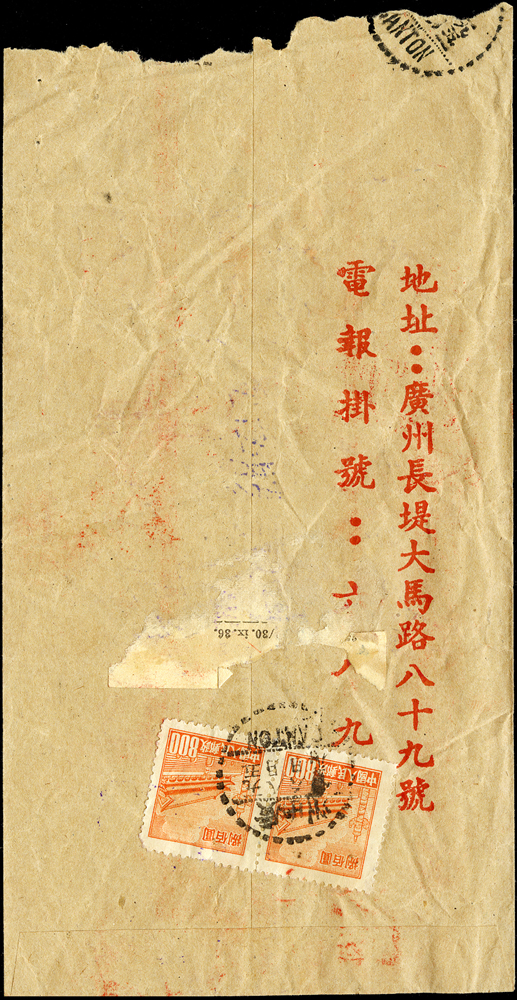 地址：廣州長堤大馬路八十九號
電報掛號：六八九
CANTON
/30.ix.36.
CANTON
中國人民郵政
800
捌佰圓
中國人民郵政
800
捌佰圓